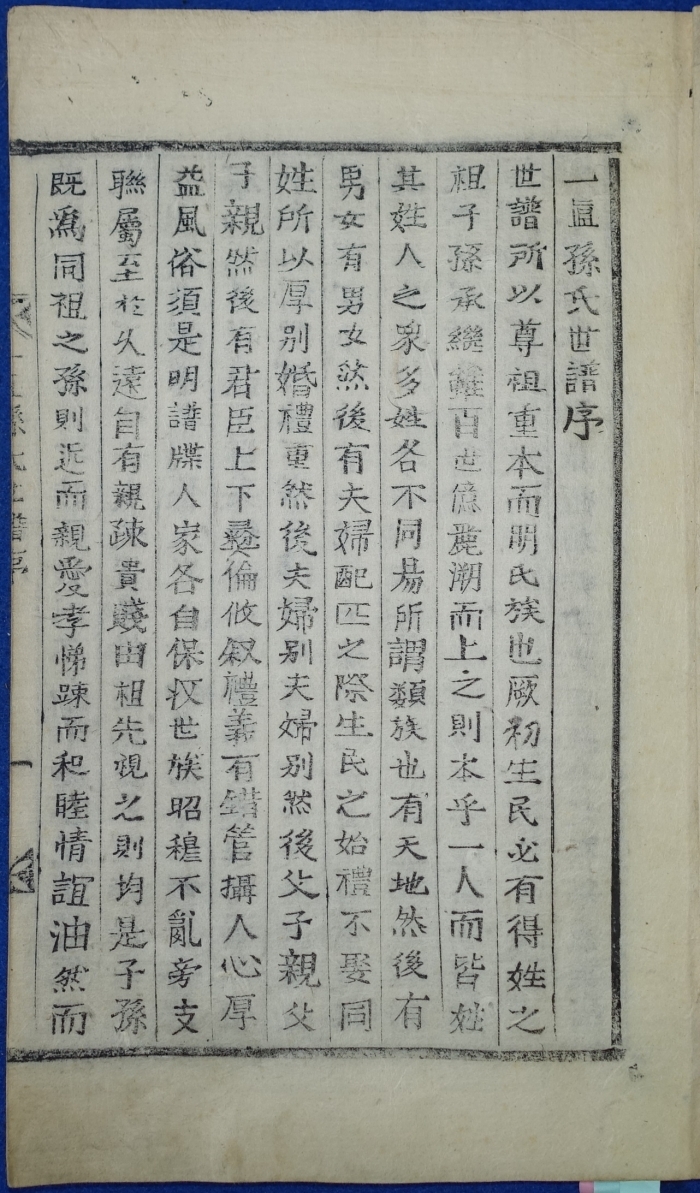 一直孫氏世譜序
世譜所以尊祖重本而明氏族也厥初生民必有得姓之
祖子孫承繼雖百世億麗溯而上之則本乎一人而皆姓
其姓人之衆多姓各不同易所謂類族也有天地然後有
男女有男女然後有夫婦配匹之際生民之始禮不娶同
姓所以厚別婚禮重然後夫婦別夫婦別然後父子親父
子親然後有君臣上下彛倫攸叙禮義有錯管攝人心厚
益風俗須是明譜牒人家各自保収世族昭穆不亂旁支
聯屬至於久遠自有親疎貴賤由祖先視之則均是子孫
既爲同祖之孫則近而親愛孝悌踈而和睦情誼油然而
孫氏世譜序
一